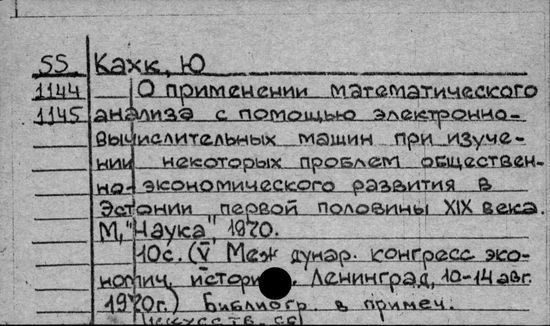 55 Кахк, Ю
1144 О применении математического
1145 анализа с помощью электронно-
вычислительных машин при изуче-
нии некоторых проблем обществен-
но-экономического развития в
Эстонии первой половины XIX века.
М., "Наука", 1970.
10с. (V Междунар. конгресс эко-
номич. истории. Ленинград, 10-14 авг.
1970г.) Библиогр. в примеч.